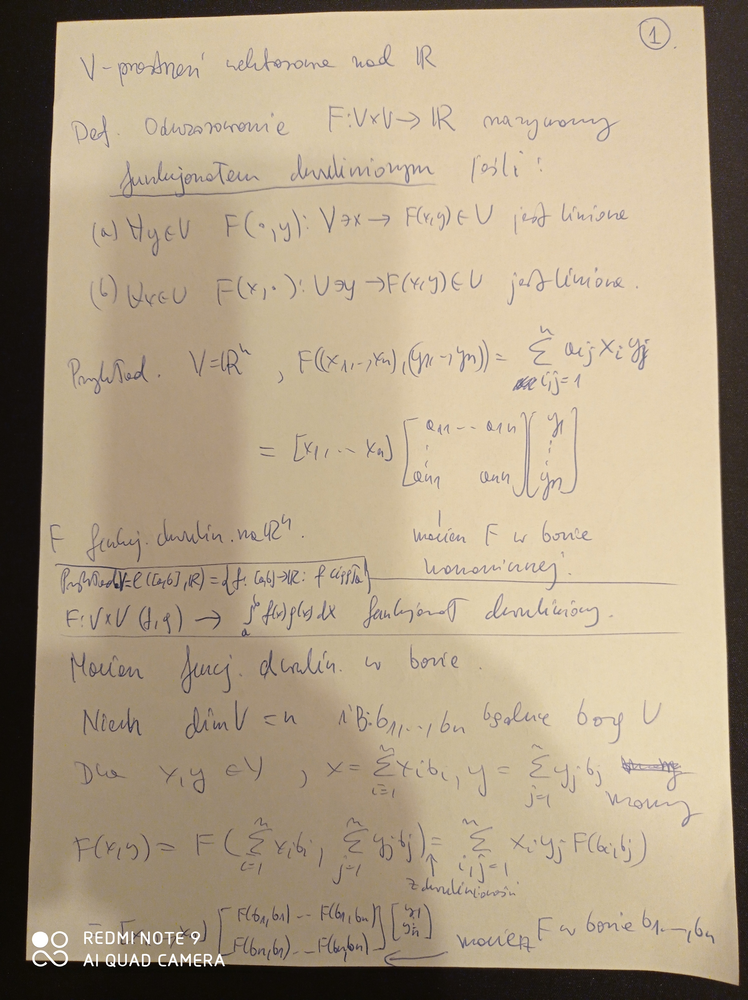 1
V-przestrzeń wektorowa nad ℝ
Def. Odwzorowanie F: V×V → ℝ nazywamy
funkcjonałem dwuliniowym jeśli:
(a) ∀y∈V F(·,y): V∋x → F(x,y)∈V jest liniowe
(b) ∀x∈V F(x,·): V∋y → F(x,y)∈V jest liniowe.
Przykład. V=ℝⁿ, F((x₁,..,xₙ),(y₁,..,yₙ)) = ∑ⁿ_{i,j=1} aᵢⱼ xᵢ yⱼ
= [x₁, ... xₙ] [a₁₁ ... a₁ₙ ⋮ aₙ₁ aₙₙ] [y₁ ⋮ yₙ]
F funkcj. dwulin. na ℝⁿ. macierz F w bazie
kanonicznej.
Przykład V=C([a,b],ℝ)={f: [a,b]→ℝ: f ciągła}
F: V×V (f,g) → ∫ₐᵇ f(x)g(x)dx funkcjonał dwuliniowy.
Macierz funcj. dwulin. w bazie.
Niech dim V = n i B: b₁,...,bₙ będzie bazą V
Dla x,y ∈ V, x = ∑ⁿ_{i=1} xᵢbᵢ, y = ∑ⁿ_{j=1} yⱼbⱼ
mamy
F(x,y) = F(∑ⁿ_{i=1} xᵢbᵢ, ∑ⁿ_{j=1} yⱼbⱼ) = ∑ⁿ_{i,j=1} xᵢyⱼF(bᵢ,bⱼ)
↑ z dwuliniowości
[F(b₁,b₁) ... F(b₁,bₙ) F(bₙ,b₁) ... F(bₙ,bₙ)] [y₁ yₙ] ← macierz F w bazie b₁...,bₙ
REDMI NOTE 9
AI QUAD CAMERA